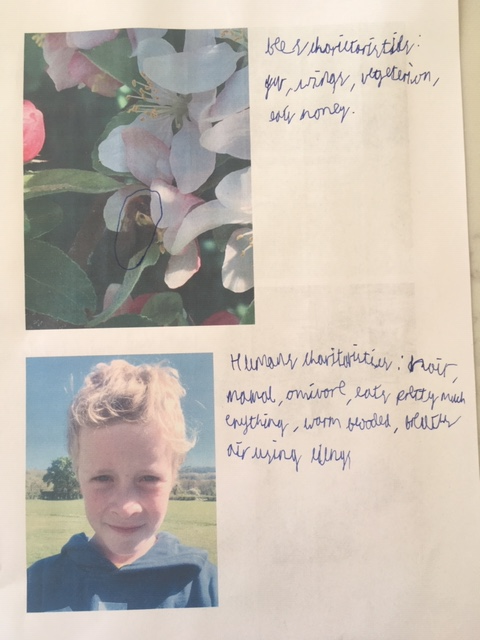 bees charicturistiks:
fur, wings, vegeterion,
eats honey.
Humans charituristics: hair,
mamal, omivore, eats pretty much
enything, warm blooded,
air using